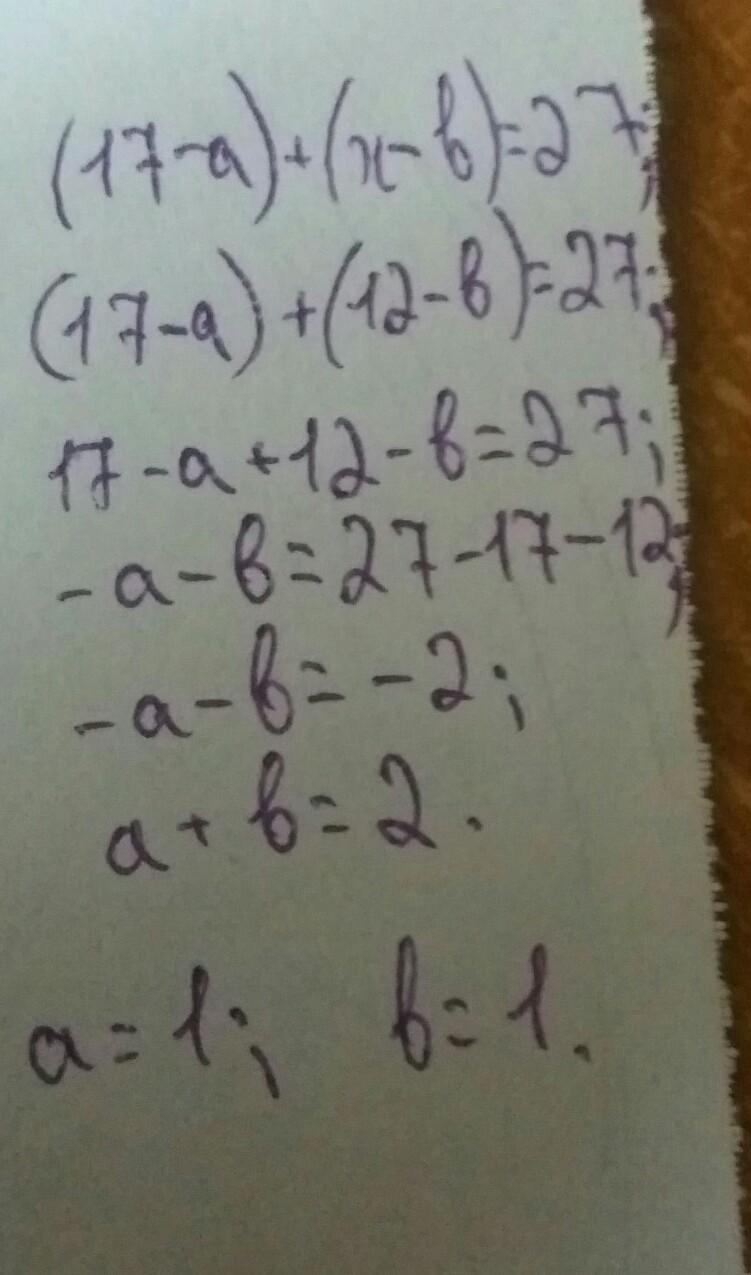 (17-a)+(x-b)=27;
(17-a)+(12-b)=27;
17-a+12-b=27;
-a-b=27-17-12;
-a-b=-2;
a+b=2.
a=1; b=1.